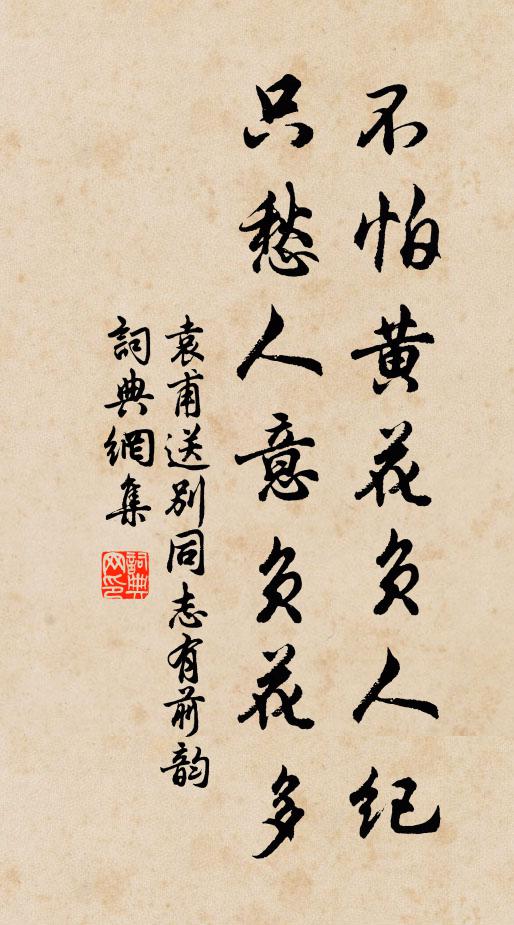 不怕黄花负人纪
只愁人意负花多
袁甫送别同志有前韵
詞典網集
詞典網印